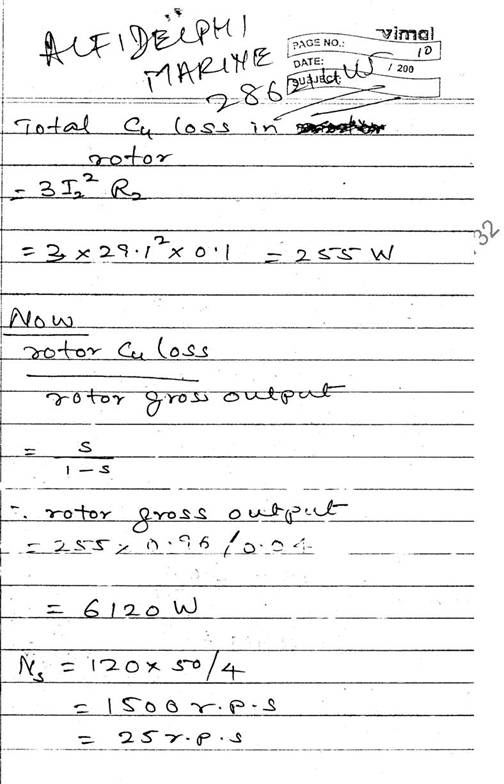 ALFIDELPHI
MARINE
286
vimal
PAGE NO.: 10
DATE: / 200
SUBJECT:
Total Cu loss in
rotor
= 3I₂² R₂
= 3 × 29.1² × 0.1 = 255 W
32
Now
rotor Cu loss
rotor gross output
= s
1 - s
∴ rotor gross output
= 255 × 0.96 / 0.04
= 6120 W
Ns = 120 × 50/4
= 1500 r.p.s
= 25 r.p.s